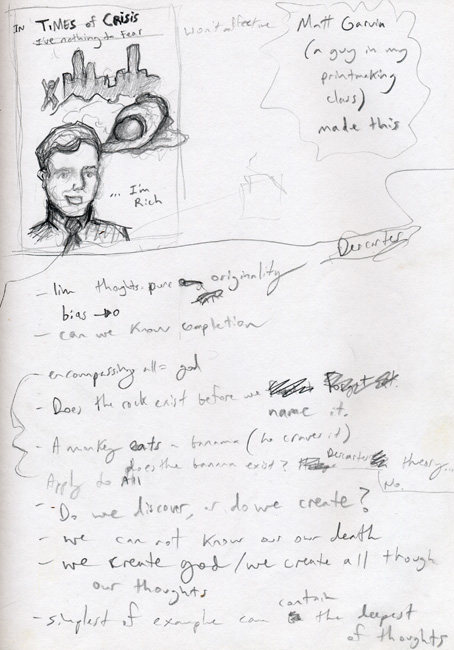 IN TIMES of CRISIS
I've nothing to Fear
won't affect me
... I'm
Rich
Matt Garvin
(a guy in my
printmaking
class)
made this
Descartes
- lim thoghts. pure originality
bias →0
- can we know completion
- encompassing all = god
- Does the rock exist before we
name it.
- A monkey eats a banana (he craves it)
does the banana exist? Descartes theory...
No.
Apply to All
- Do we discover, or do we create?
- we can not know our our death
- we create god / we create all though
our thoughts
- simplest of example can contain the deepest
of thoughts